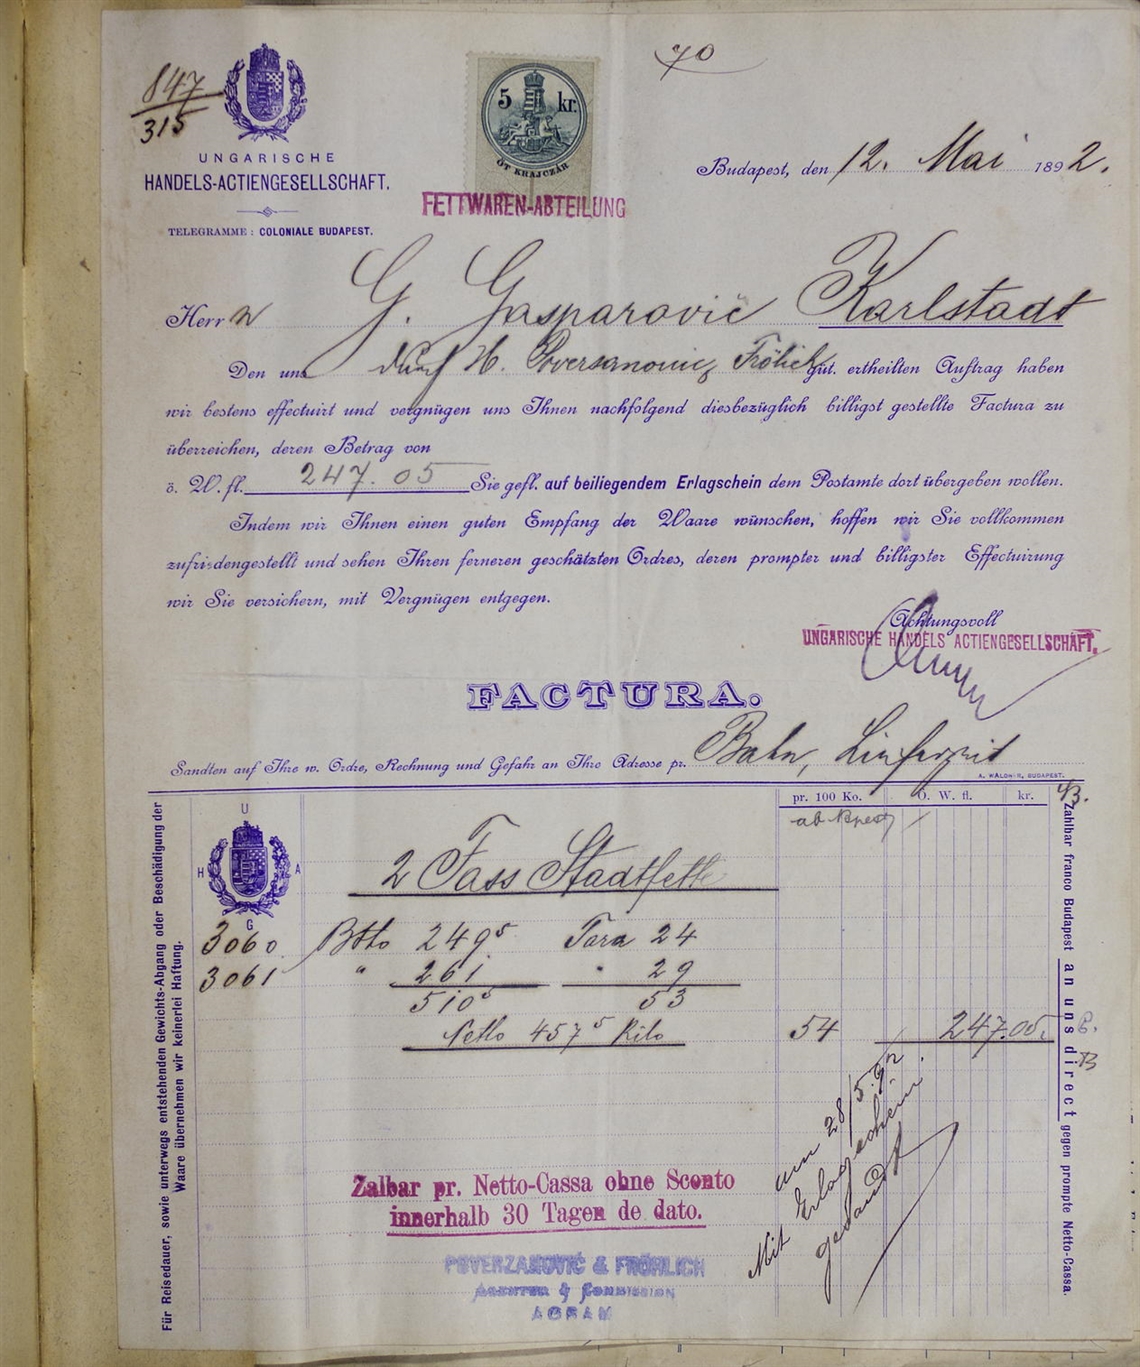 70
847
315
5 kr.
ÖT KRAJCZÁR
UNGARISCHE
HANDELS-ACTIENGESELLSCHAFT.
TELEGRAMME: COLONIALE BUDAPEST.
FETTWAREN-ABTEILUNG
Budapest, den 12. Mai 1892.
Herrn G. Gasparovič Karlstadt
Den uns durch H. Poversanovic Frölich güt. ertheilten Auftrag haben
wir bestens effectuirt und vergnügen uns Ihnen nachfolgend diesbezüglich billigst gestellte Factura zu
überreichen, deren Betrag von
ö. W. fl. 247.05 Sie gefl. auf beiliegendem Erlagschein dem Postamte dort übergeben wollen.
Indem wir Ihnen einen guten Empfang der Waare wünschen, hoffen wir Sie vollkommen
zufriedengestellt und sehen Ihren ferneren geschätzten Ordres, deren prompter und billigster Effectuirung
wir Sie versichern, mit Vergnügen entgegen.
Achtungsvoll
UNGARISCHE HANDELS ACTIENGESELLSCHAFT.
FACTURA.
Sandten auf Ihre w. Ordre, Rechnung und Gefahr an Ihre Adresse pr. Bahn,
A. WALDNER, BUDAPEST.
pr. 100 Ko. Ö. W. fl. kr.
U
H A
G
2 Fass Stadtfette
3060 Btto 249⁵ Tara 24
3061 " 261. " 29
510⁵ 53
Netto 457⁵ Kilo 54 247.05.
am 28/5.92
Mit Erlagschein
gesandt
Zalbar pr. Netto-Cassa ohne Sconto
innerhalb 30 Tagen de dato.
POVERZANOVIĆ & FRÖHLICH
AGENTUR & COMMISSION
AGRAM
Für Reisedauer, sowie unterwegs entstehenden Gewichts-Abgang oder Beschädigung der
Waare übernehmen wir keinerlei Haftung.
Zahlbar franco Budapest an uns direct gegen prompte Netto-Cassa.